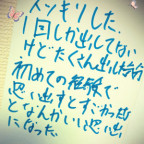 スッキリした、
1回しか出してない
けどたくさん出した
初めての経験で
思い出すとすごかった
となんかいい思い出
になった